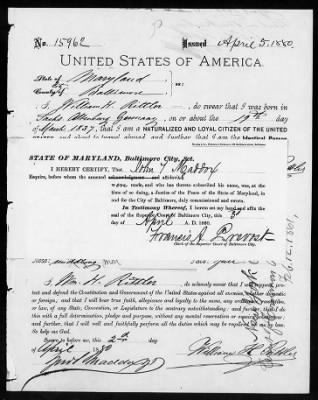 No. 15962 Issued April 5, 1880.
UNITED STATES OF AMERICA.
State of Maryland
County of Baltimore ss:
I, William H. Rittler, do swear that I was born in
Altenburg Germany, on or about the 19th day
of March 1837; that I am a NATURALIZED AND LOYAL CITIZEN OF THE UNITED
and that I am the Identical Person
STATE OF MARYLAND, Baltimore City, Sct.
I HEREBY CERTIFY, That John T. Maddox
Esquire, before whom the annexed affidavits
were made, and who thereto subscribed his name, was, at the
time of so doing, a Justice of the Peace of the State of Maryland, in
and for the City of Baltimore, duly commissioned and sworn.
In Testimony Whereof, I hereto set my hand and affix the
seal of the Superior Court of Baltimore City, this 3d
day of April A. D. 1880.
Francis A. Prevost
Clerk of the Superior Court of Baltimore City.
I, Wm. H. Rittler, do solemnly swear that I will support, pro-
tect and defend the Constitution and Government of the United States against all enemies, whether domestic
or foreign; and that I will bear true faith, allegiance and loyalty to the same, any ordinance, resolution
or law of any State, Convention, or Legislature to the contrary notwithstanding; and further, that I do
this with a full determination, pledge and purpose, without any mental reservation or evasion whatsoever;
and further, that I will well and faithfully perform all the duties which may be required of me by law.
So help me God.
Sworn to before me, this 2nd day
of April 1880
Jno T Maddox J.P.
William H Rittler